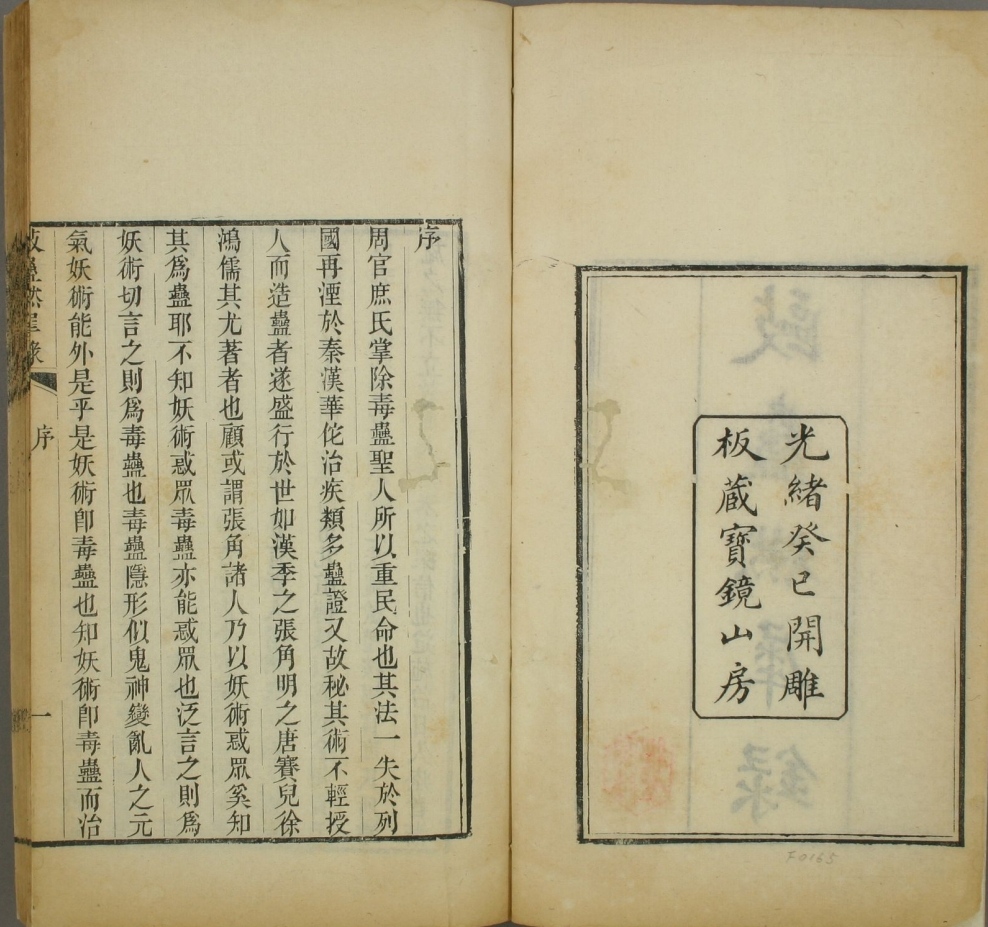 光緒癸巳開雕
板藏寶鏡山房
序
周官庶氏掌除毒蠱聖人所以重民命也其法一失於列
國再湮於秦漢華佗治疾類多蠱證又故秘其術不輕授
人而造蠱者遂盛行於世如漢季之張角明之唐賽兒徐
鴻儒其尤著者也顧或謂張角諸人乃以妖術惑眾奚知
其爲蠱耶不知妖術惑眾毒蠱亦能惑眾也泛言之則爲
妖術切言之則爲毒蠱也毒蠱隱形似鬼神變亂人之元
氣妖術能外是乎是妖術卽毒蠱也知妖術卽毒蠱而治
蠱燃犀錄
序
一
F0165